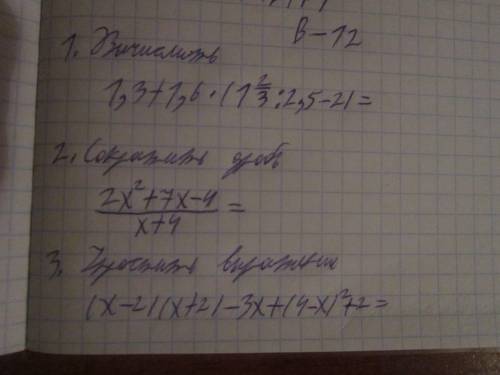 В-12
1. Вычислить
1,3+1,6·(1 2/3:2,5-2)=
2. Сократить дробь
(2x²+7x-4)/(x+4)=
3. Упростить выражения
(x-2)(x+2)-3x+(4-x)²+2=